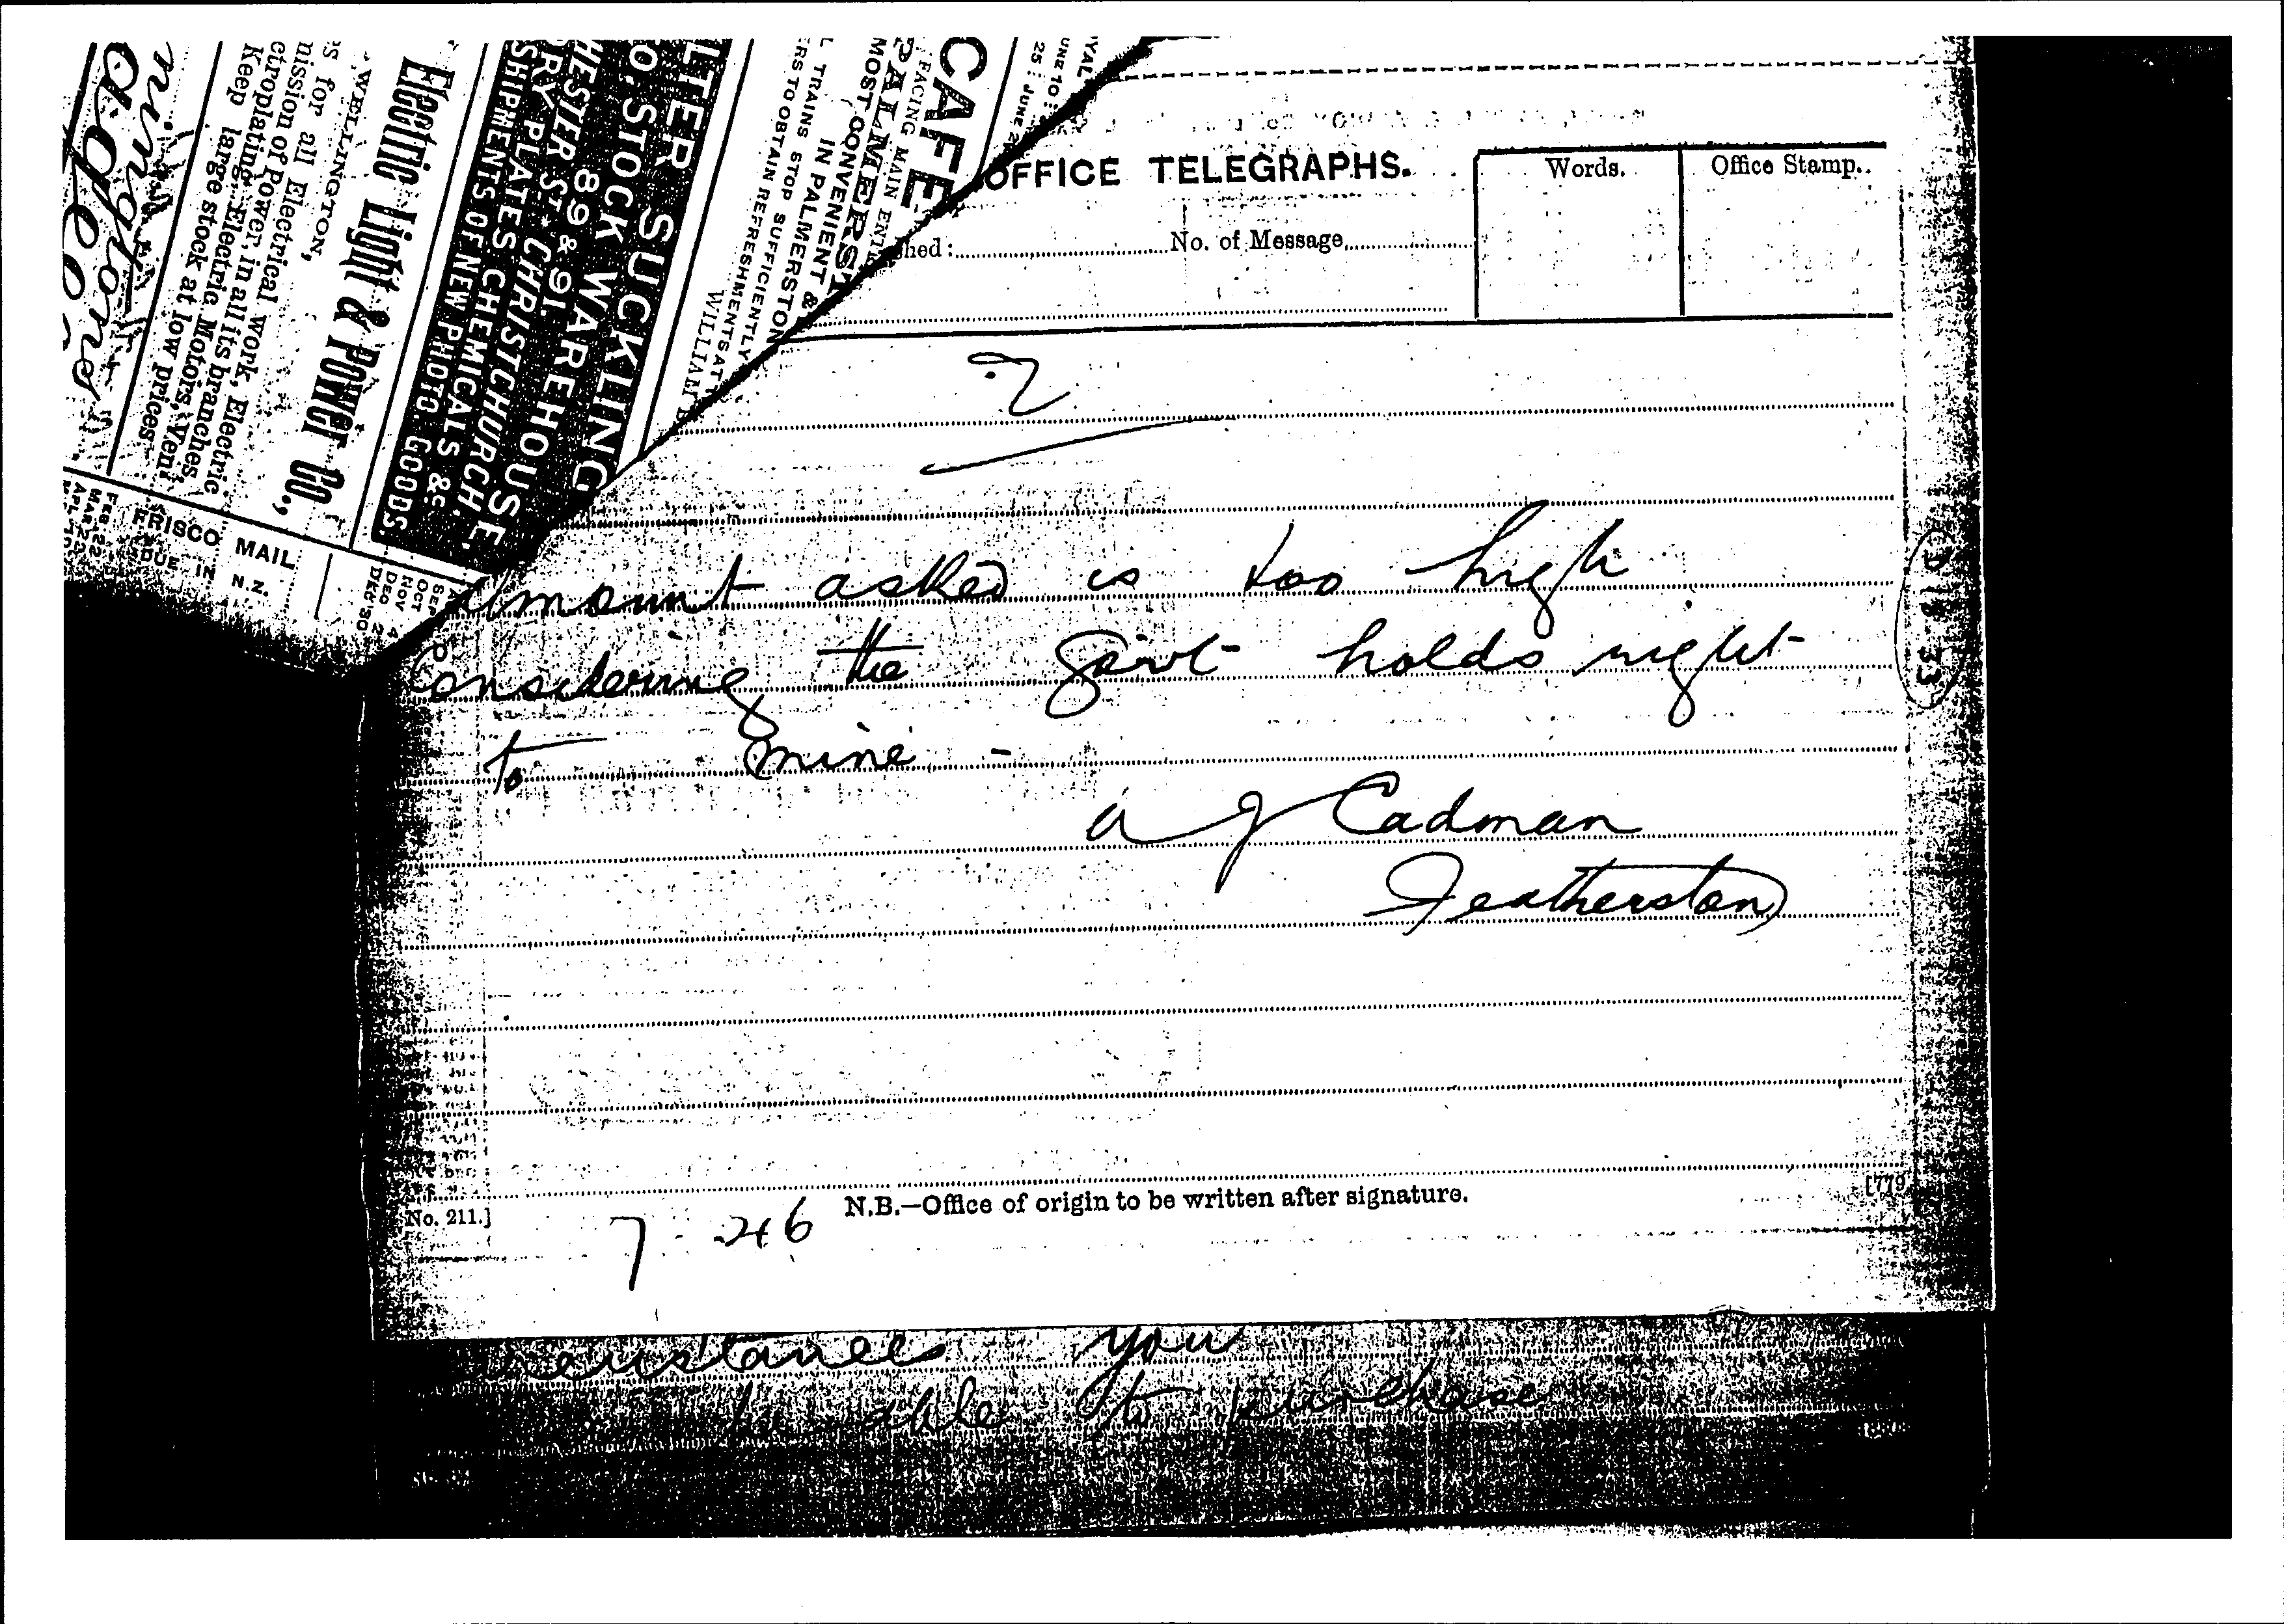 OFFICE TELEGRAPHS.
Words.
Office Stamp.
No. of Message
2
Amount asked is too high
Considering the Govt holds right
to mine -
A J Cadman
Featherston
No. 211.]
N.B.—Office of origin to be written after signature.
[779
7 246
you
able to purchase
CAFE
FACING MAIN
MOST CONVENIENT &
IN PALMERSTON
TRAINS STOP SUFFICIENTLY
TO OBTAIN REFRESHMENTS AT
WILLIAM
LTER SUCKLING
O. STOCK WAREHOUSE.
HESTER ST 89 & 91.
RY PLATES CHRISTCHURCH.
CHEMICALS &c
SHIPMENTS OF NEW PHOTO. GOODS.
Electric Light & Power Co.,
WELLINGTON,
for all Electrical work, Electric
mission of Power in all its branches
ctroplating, Electric Motors, Vent
Keep large stock at low prices
FRISCO MAIL
DUE IN N.Z.
FEB 22
MAR 22
SEP
OCT
NOV
DEC 2
DEC 30